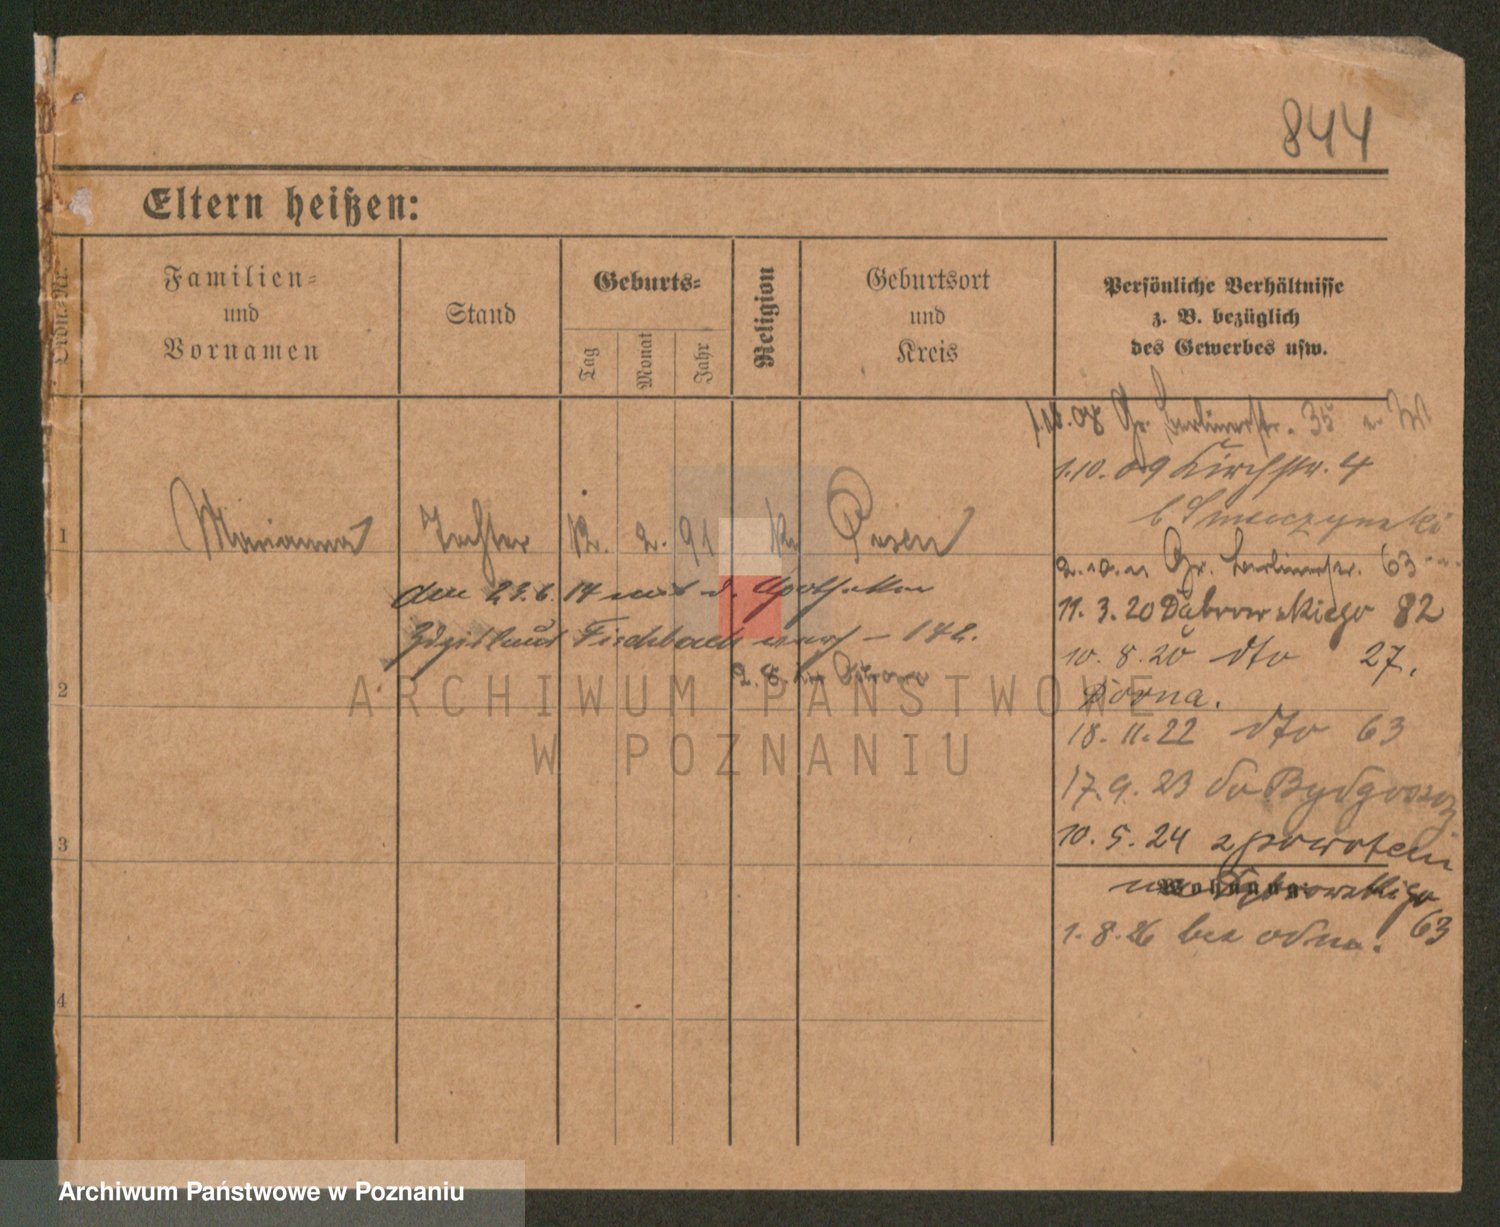 844
Eltern heißen:
Ordn. Nr.
Familien-
und
Vornamen
Stand
Geburts-
Tag
Monat
Jahr
Religion
Geburtsort
und
Kreis
Persönliche Verhältnisse
z. B. bezüglich
des Gewerbes usw.
1.10.08 Gr. Berlinerstr. 35
1.10.09 Kirchstr. 4
b Smoczynski
1 Marianna Tochter 12. 2. 91 k. Posen
Gr. Berlinerstr. 63
den 23.6.14 mit d. Apotheker
11. 3. 20 Dąbrowskiego 82
Fischbach 142.
10. 8. 20 dto 27.
2
Górna.
18. 11. 22 dto 63
17. 9. 23 do Bydgoszcz
10. 5. 24 z powrotem
3
Wohnung:
Dąbrowskiego
63
1. 8. 26 bez odm.
4
ARCHIWUM PAŃSTWOWE
W POZNANIU
Archiwum Państwowe w Poznaniu